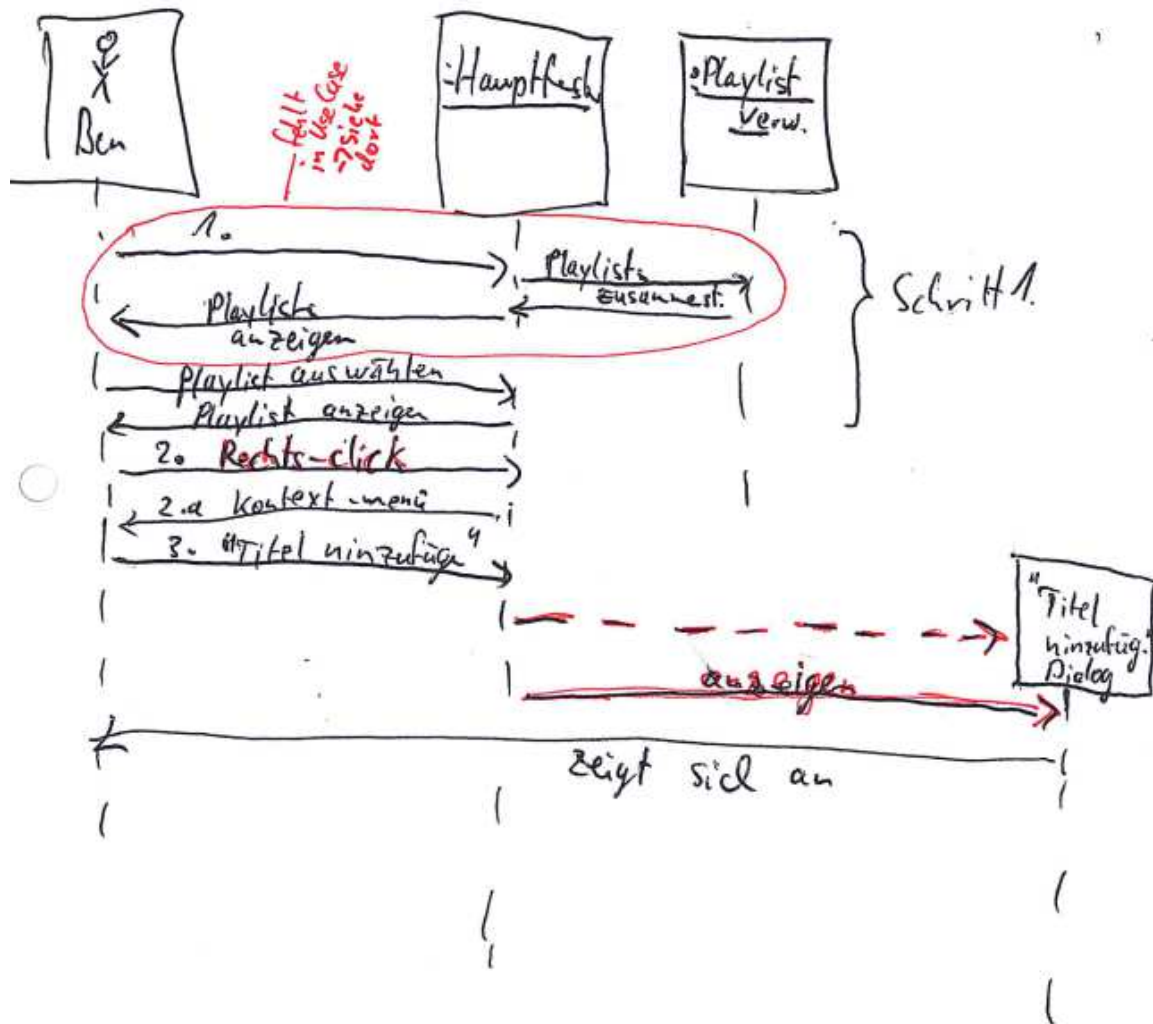 Ben
:Hauptfenst.
:Playlist
Verw.
fehlt
in Use Case
→ siehe
dort
1.
Playlists
zusammenst.
Playlists
anzeigen
Schritt 1.
Playlist auswählen
Playlist anzeigen
2. Rechts-click
2.a Kontext-menü
3. "Titel hinzufüge"
"Titel
hinzufüg."
Dialog
anzeigen
zeigt sich an